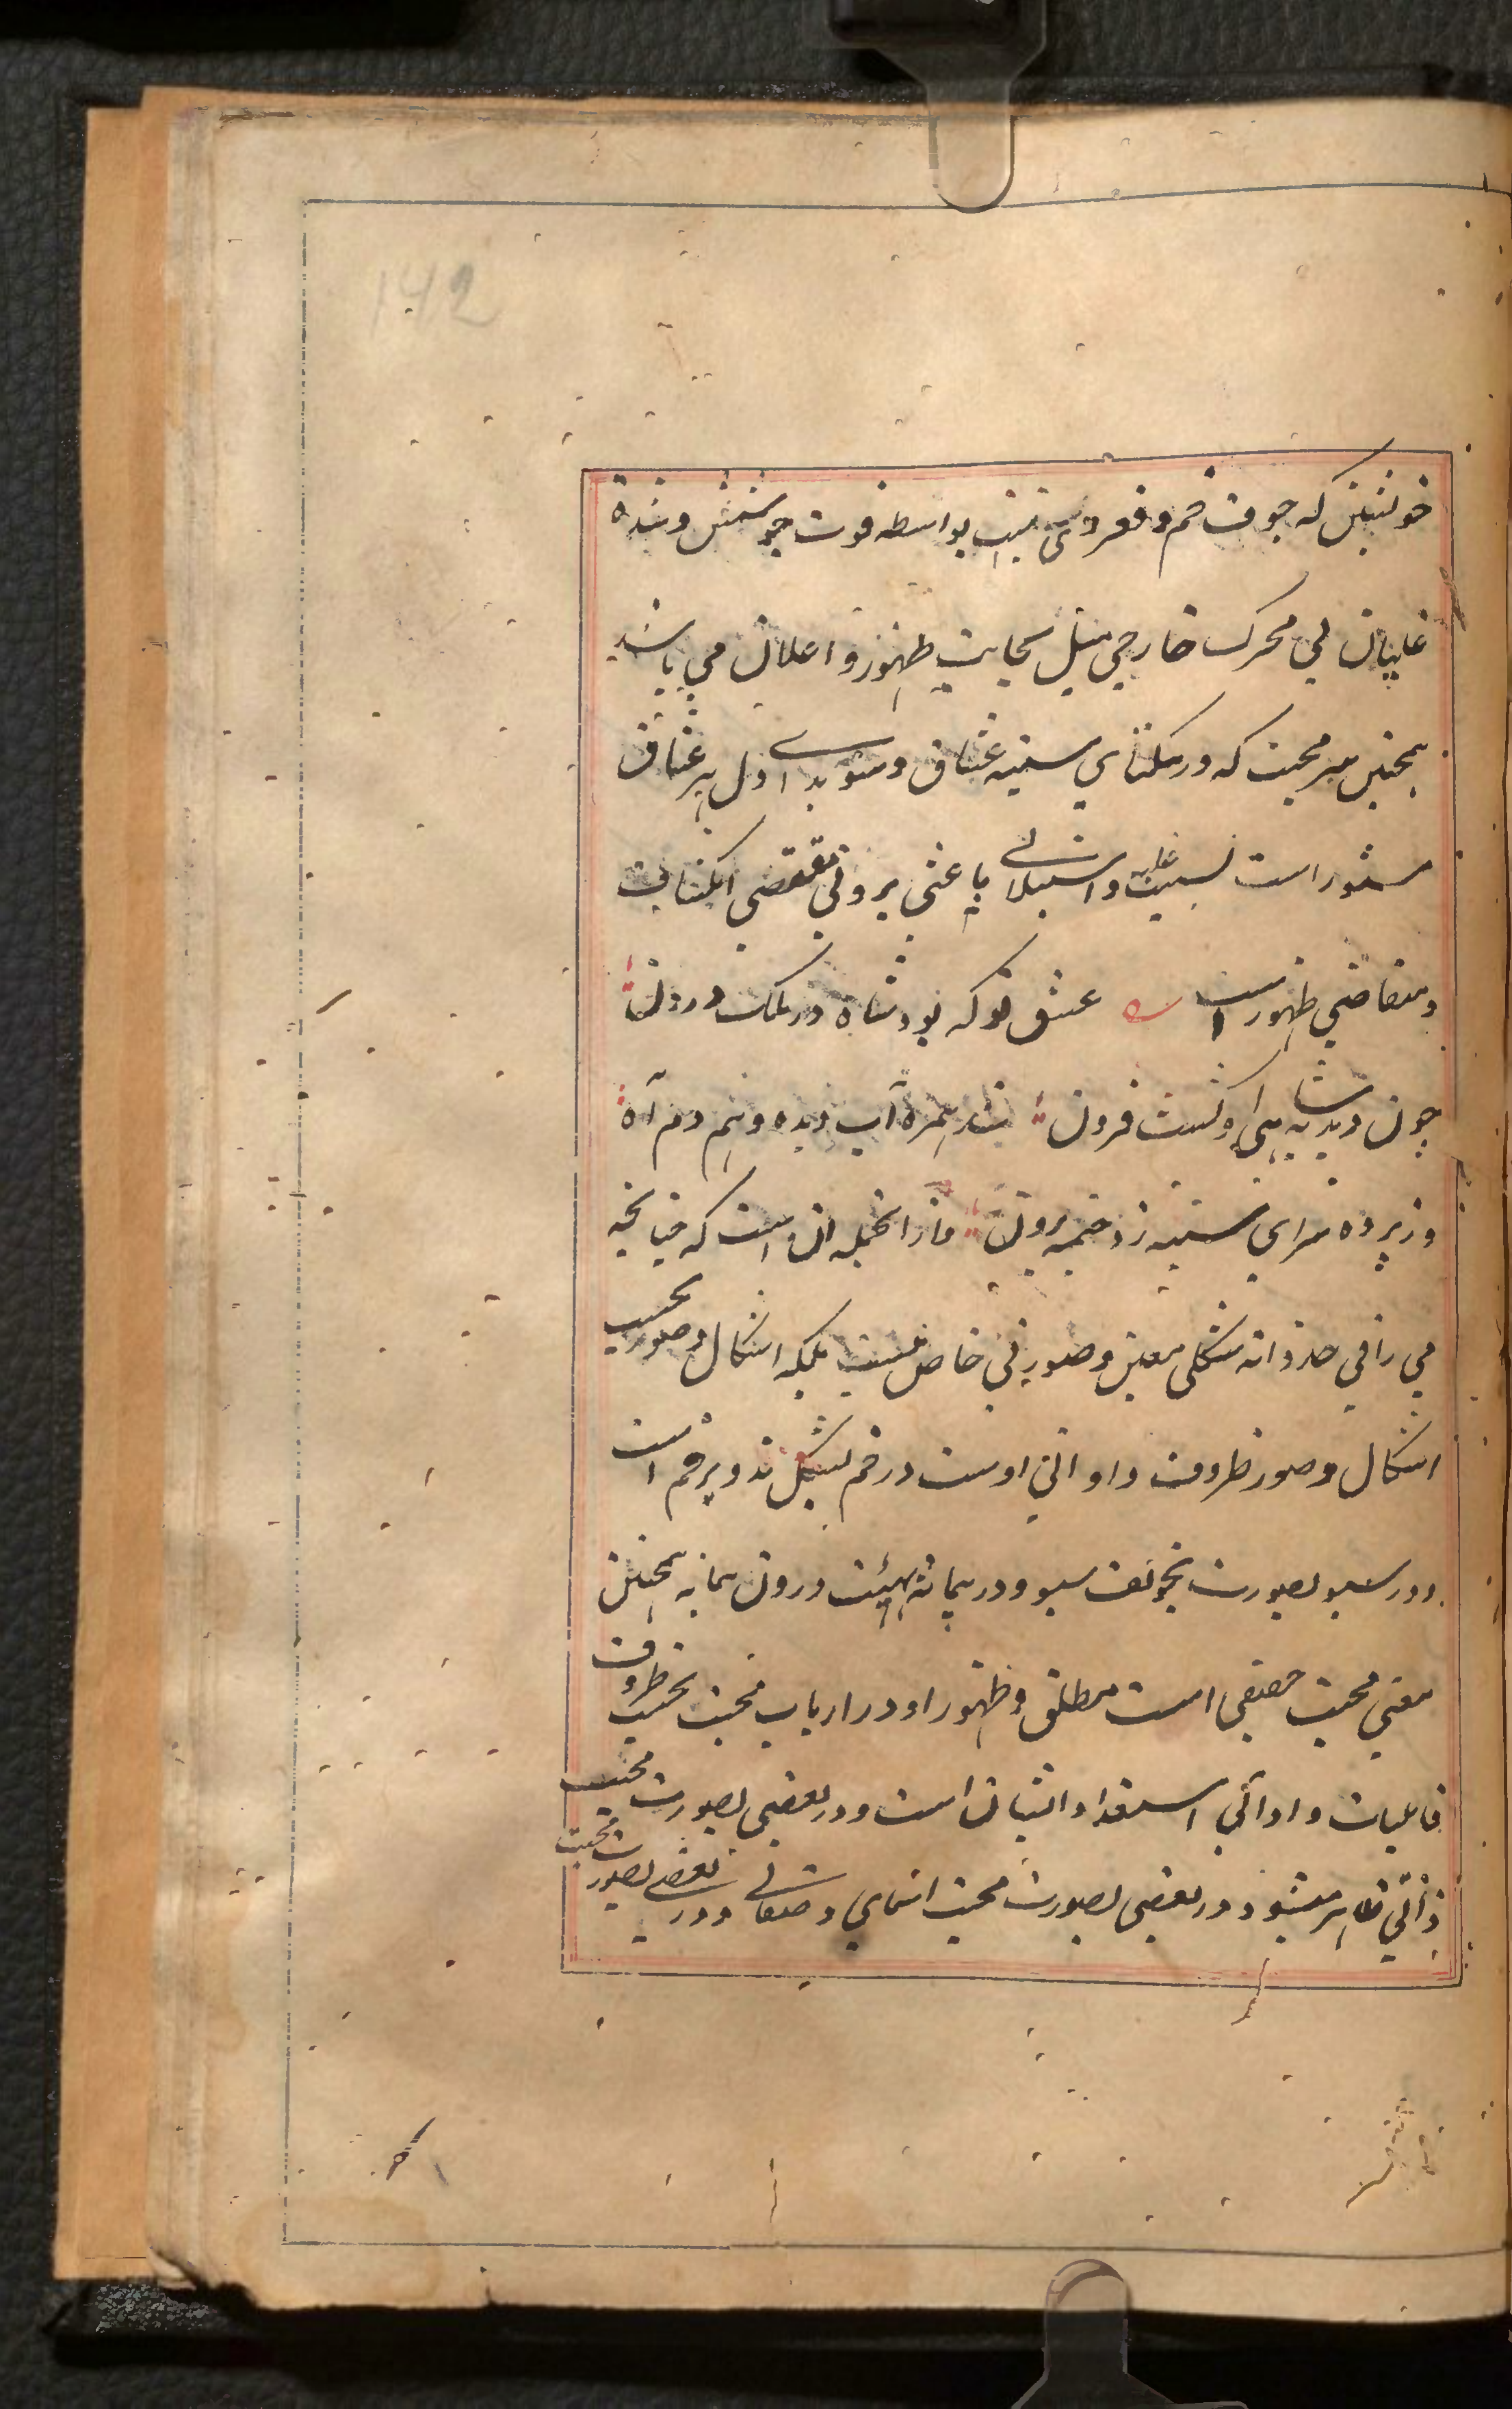 142
خویشتن که جوف خم و قعر دن نیست بواسطه قوت جوشش و شدة
غلیان بی محرک خارجی میل بجانب ظهور و اعلان می باشد
همچنین سر محبت که در تنکنای سینه عشاق و سویدای دل هر عشاق
مستور است بسبب غلبه و استیلای باعثی بروی مقتضی انکشاف
و متقاضی ظهور است عشق تو که بود شاه در ملک درون
چون دبدبه شاهی او کشت فزون شد همره آب دیده و هم دم آه
وز پرده سرای سینه زد خیمه برون و از انجمله ان است که چنانچه
می را فی حد ذاته شکلی معین و صورتی خاص نیست بلکه اشکال و صور بحسب
اشکال و صور ظروف و اوانی اوست در خم بشکل تدویر خم است
و در سبو بصورت تجویف سبو و در پیمانه بهیئت درون پیمانه همچنین
معنی محبت حقیقی است مطلق و ظهور او در ارباب محبت بحسب ظروف
قابلیات و اوانی استعداد ایشان است و در بعضی بصورت محبت
ذاتی ظاهر میشود و در بعضی بصورت محبت اسمای و صفاتی و در بعضی بصورت محبت